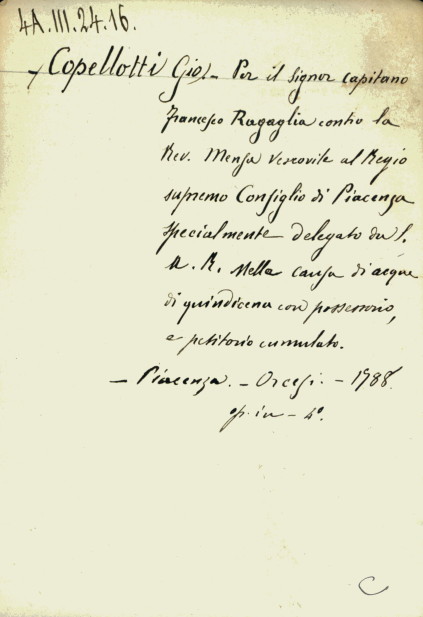 4A.III.24.16.
Copellotti Gio: - Per il signor capitano
Francesco Ragaglia contro la
Rev. Mensa Vescovile al Regio
supremo Consiglio di Piacenza
specialmente delegato da S.
A. R. Nella causa di acque
di quindicena con possessorio,
e petitorio cumulato.
- Piacenza. - Orcesi. - 1788.
op. in - 4°.
C